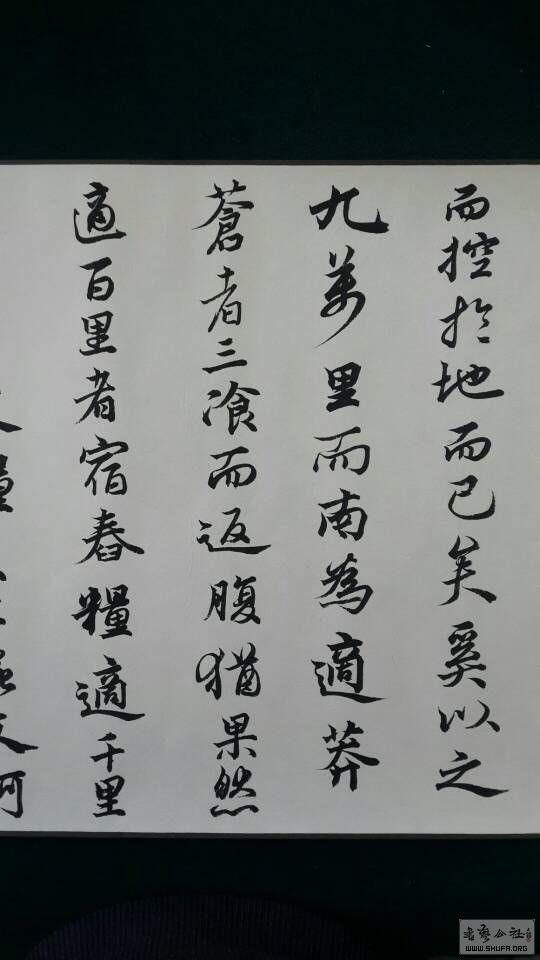 而控於地而已矣奚以之
九萬里而南為適莽
蒼者三飡而返腹猶果然
適百里者宿舂糧適千里
糧
WWW.SHUFA.ORG